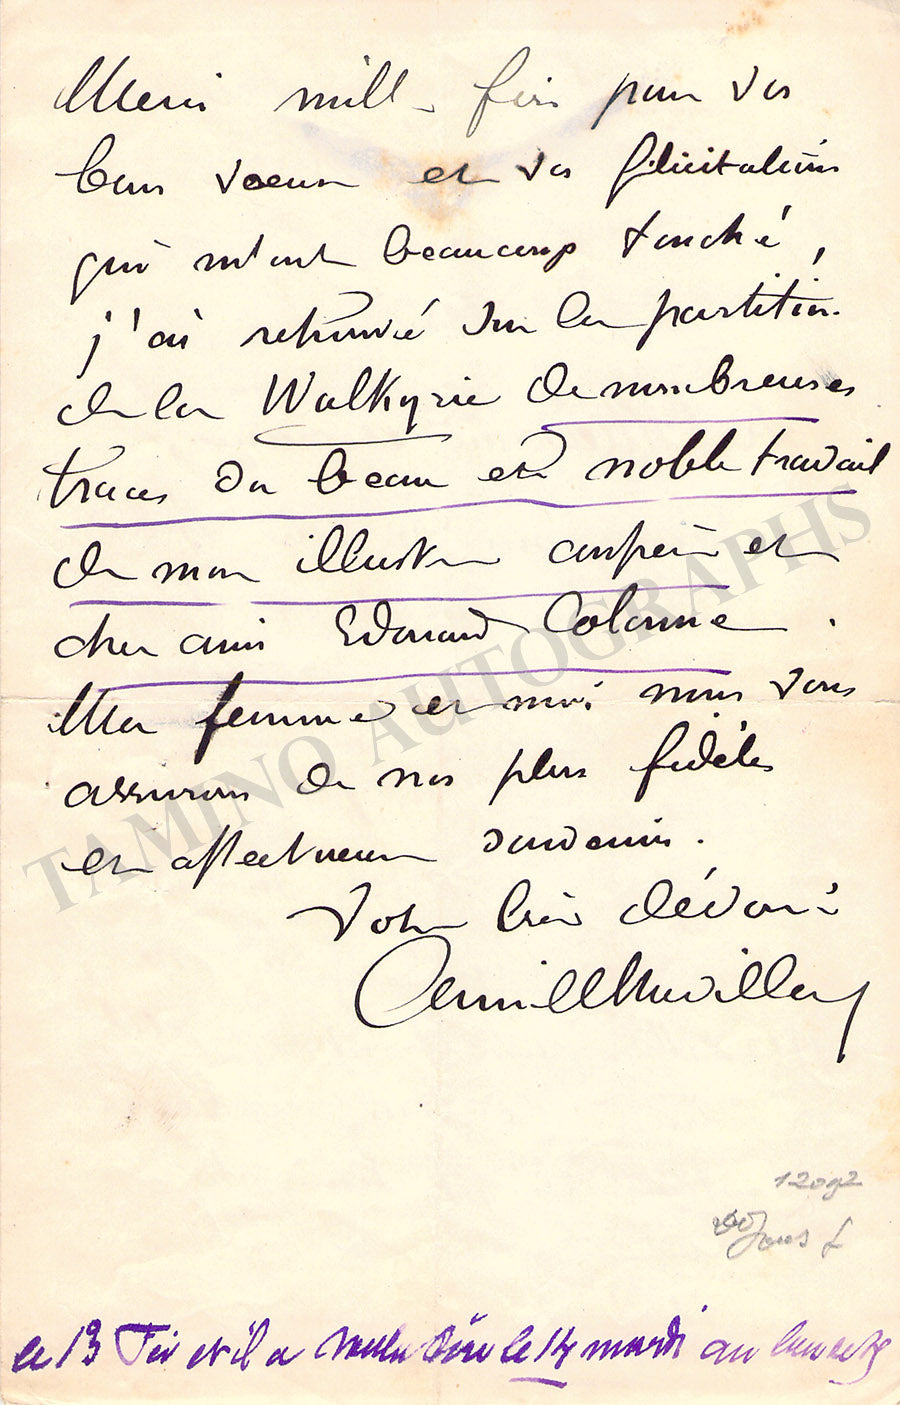 Merci mille fois pour vos
bons voeux et vos félicitations
qui m'ont beaucoup touché,
j'ai retrouvé sur la partition
de la Walkyrie de nombreuses
traces du beau et noble travail
de mon illustre confrère et
cher ami Edouard Colonne.
Ma femme et moi nous vous
assurons de nos plus fidèles
et affectueux souvenirs.
Votre très dévoué
Camille Chevillard
12092
le 13 Fév et il a voulu dire le 14 mardi au lieu de
TAMINO AUTOGRAPHS